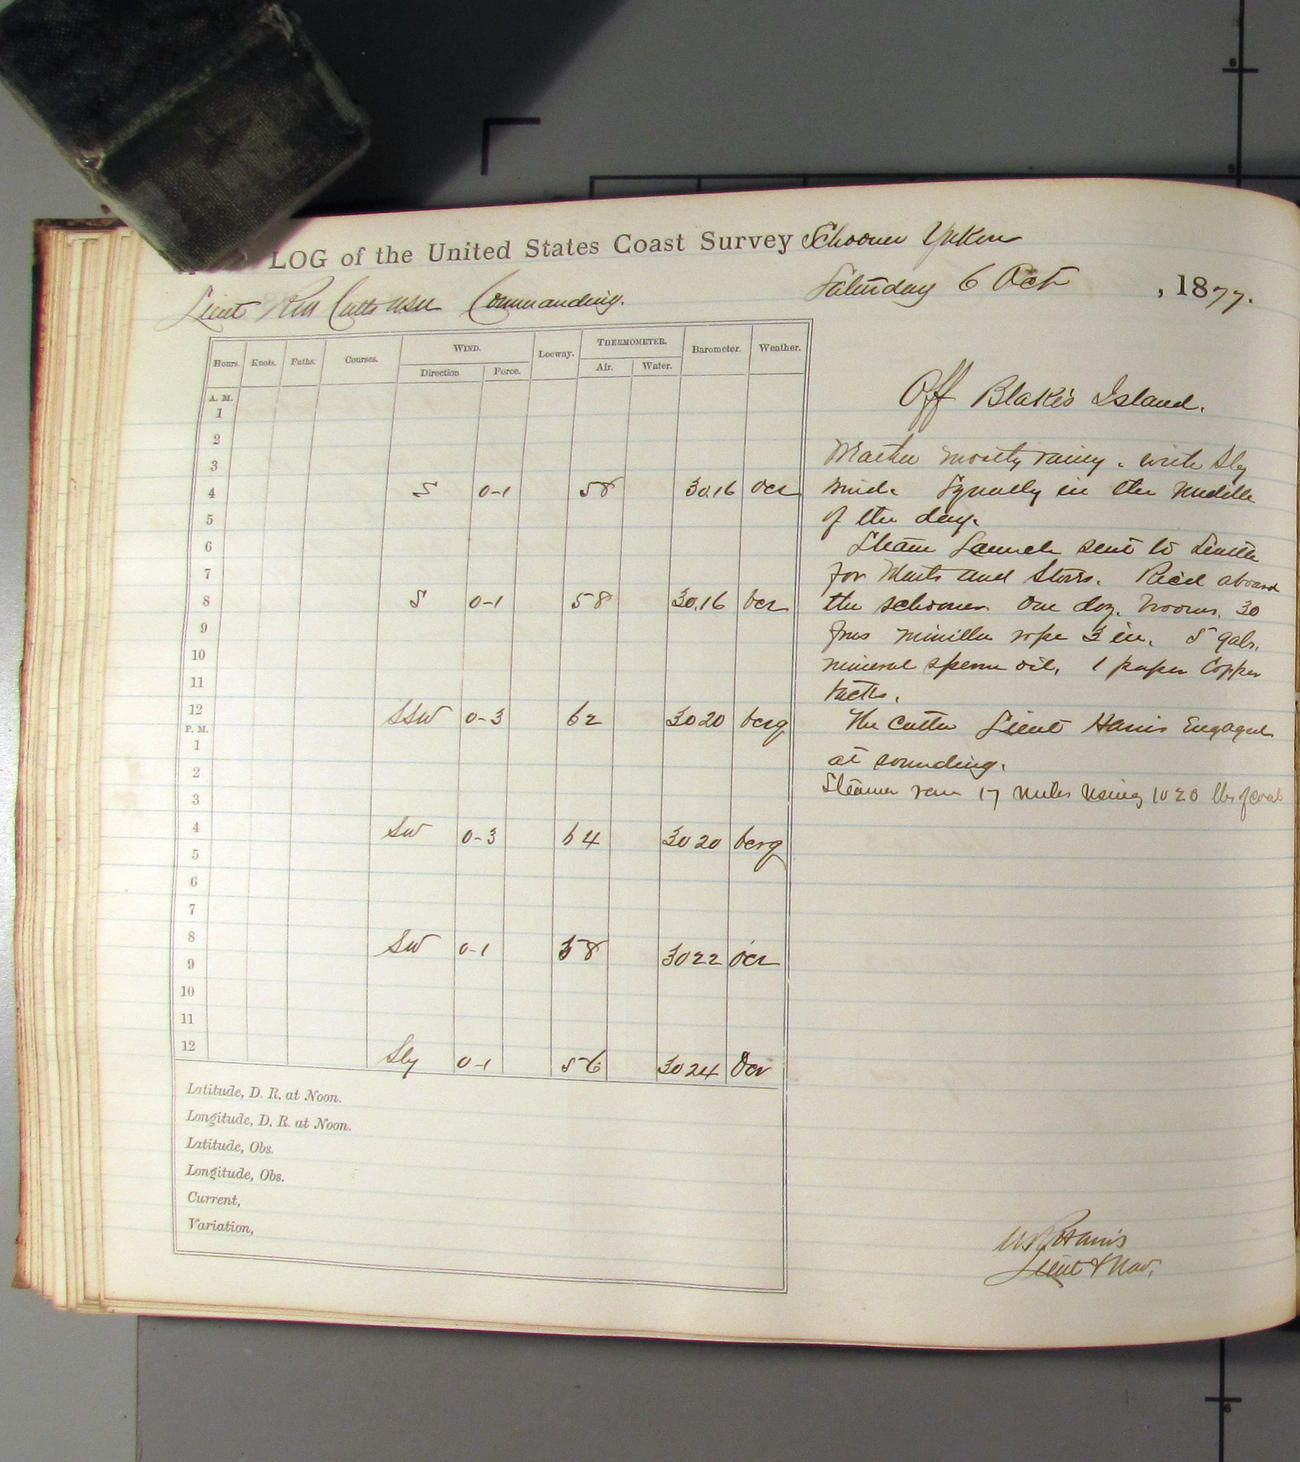 LOG of the United States Coast Survey Schooner Yukon
Lieut Commanding.
Saturday 6 Oct , 1877.
Hours. Knots. Faths. Courses. WIND. Leeway. THERMOMETER. Barometer. Weather.
Direction Force. Air. Water.
A. M.
1
2
3
4 S 0-1 58 30.16 ocr
5
6
7
8 S 0-1 58 30.16 ocr
9
10
11
12 SSW 0-3 62 3020 bcrq
P. M.
1
2
3
4 SW 0-3 64 3020 bcrq
5
6
7
8 SW 0-1 58 3022 ocr
9
10
11
12 Sly 0-1 56 3024 Ocr
Latitude, D. R. at Noon.
Longitude, D. R. at Noon.
Latitude, Obs.
Longitude, Obs.
Current,
Variation,
Off Blake's Island.
Weather mostly rainy. with Sly
wind. Squally in the middle
of the day.
Steam Launch sent to Seattle
for Mails and Stores. Rec'd aboard
the schooner One doz. brooms, 30
fms manilla rope 3 in. 5 gals.
mineral sperm oil, 1 paper Copper
tacks.
The cutter Lieut Harris Engaged
at sounding.
Steamer ran 17 miles using 1020 lbs of coal
Harris
Lieut & Nav.